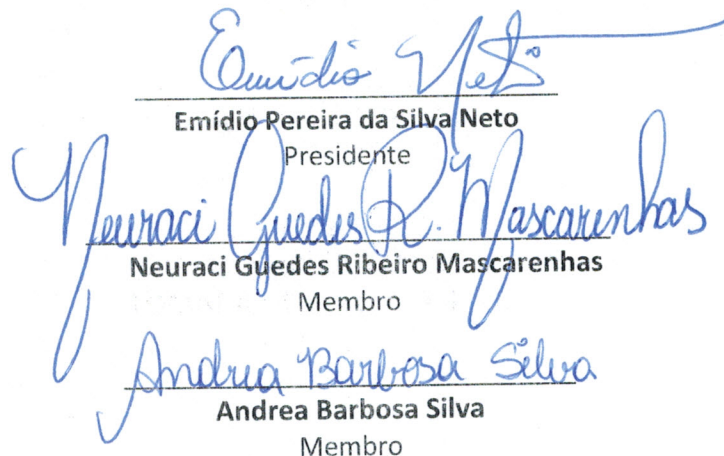 Emídio Neto
Emídio Pereira da Silva Neto
Presidente
Neuraci Guedes R. Mascarenhas
Neuraci Guedes Ribeiro Mascarenhas
Membro
Andrea Barbosa Silva
Andrea Barbosa Silva
Membro